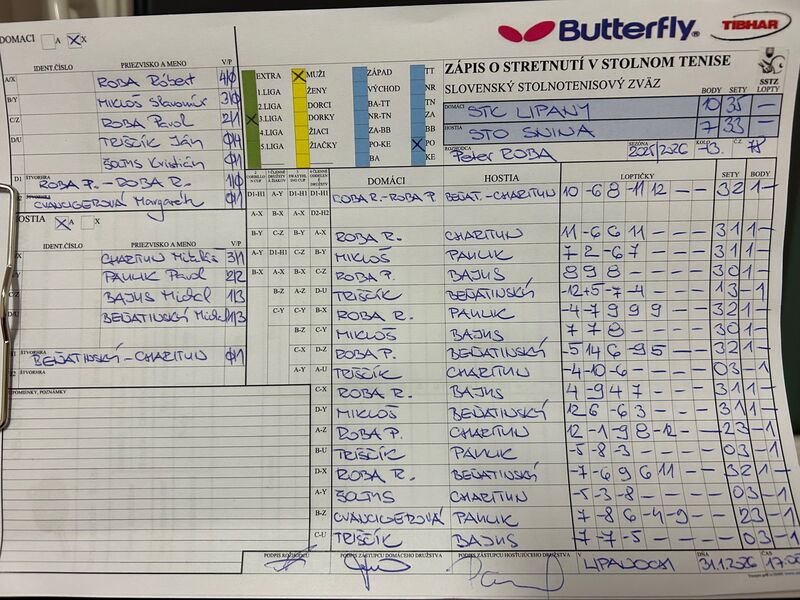 Butterfly
TIBHAR
DOMÁCI A X X
IDENT.ČÍSLO PRIEZVISKO A MENO V/P
A/X ROBA Róbert 4/0
B/Y MIKLOŠ Slavomír 3/0
C/Z ROBA Pavol 2/1
D/U TRIŠČÍK Ján 0/4
ŠOLTYS Kristián 0/1
D1 ŠTVORHRA ROBA P. - ROBA R. 1/0
CVANCIGEROVÁ Margaréth 0/1
HOSTIA X A X
IDENT.ČÍSLO PRIEZVISKO A MENO V/P
CHARITUN 3/1
PAVLIK Pavol 2/2
BAJUS Michal 1/3
BEŇATINSKÝ 1/3
ŠTVORHRA BEŇATINSKÝ - CHARITUN 0/1
ŠTVORHRA
POZNÁMKY
EXTRA
1.LIGA
2.LIGA
X 3.LIGA
4.LIGA
5.LIGA
X MUŽI
ŽENY
DORCI
DORKY
ŽIACI
ŽIAČKY
ZÁPAD
VÝCHOD
BA-TT
NR-TN
ZA-BB
PO-KE
BA
TT
NR
TN
ZA
BB
X PO
KE
ZÁPIS O STRETNUTÍ V STOLNOM TENISE
SLOVENSKÝ STOLNOTENISOVÝ ZVÄZ
SSTZ
BODY SETY LOPTY
DOMÁCI STK LIPANY 10 35 -
HOSTIA STO SNINA 7 33 -
ROZHODCA Peter ROBA SEZÓNA 2025/2026 KOLO 13. Č.Z. 78
DOMÁCI HOSTIA LOPTIČKY SETY BODY
D1-H1 A-Y D1-H1 D1-H1 ROBA R.-ROBA P. BEŇAT.-CHARITUN 10 -6 8 -11 12 - - 3 2 1 -
A-X B-X A-X D2-H2
B-Y C-Z B-Y A-X ROBA R. CHARITUN 11 -6 6 11 - - - 3 1 1 -
A-Y D1-H1 C-Z B-Y MIKLOŠ PAVLIK 7 2 -6 7 - - - 3 1 1 -
B-X A-X B-X C-Z ROBA P. BAJUS 8 9 8 - - - - 3 0 1 -
B-Z A-Z D-U TRIŠČÍK BEŇATINSKÝ -12 +5 -7 -4 - - - 1 3 - 1
C-Y C-Y B-X ROBA R. PAVLIK -4 -7 9 9 9 - - 3 2 1 -
B-Z C-Y MIKLOŠ BAJUS 7 7 8 - - - - 3 0 1 -
C-X D-Z ROBA P. BEŇATINSKÝ -5 14 6 -9 5 - - 3 2 1 -
A-Y A-U TRIŠČÍK CHARITUN -4 -10 -6 - - - - 0 3 - 1
C-X ROBA R. BAJUS 4 -9 4 7 - - - 3 1 1 -
D-Y MIKLOŠ BEŇATINSKÝ 12 6 -6 3 - - - 3 1 1 -
A-Z ROBA P. CHARITUN 12 -1 -9 8 -12 - - 2 3 - 1
B-U TRIŠČÍK PAVLIK -5 -8 -3 - - - - 0 3 - 1
D-X ROBA R. BEŇATINSKÝ -7 -6 9 6 11 - - 3 2 1 -
A-Y ŠOLTYS CHARITUN -5 -3 -8 - - - - 0 3 - 1
B-Z CVANCIGEROVÁ PAVLIK -7 -8 6 -4 -9 - - 2 3 - 1
C-U TRIŠČÍK BAJUS -7 -7 -5 - - - - 0 3 - 1
PODPIS ROZHODCU PODPIS ZÁSTUPCU DOMÁCEHO DRUŽSTVA PODPIS ZÁSTUPCU HOSŤUJÚCEHO DRUŽSTVA V LIPANOCH DŇA 31.1.2026 ČAS